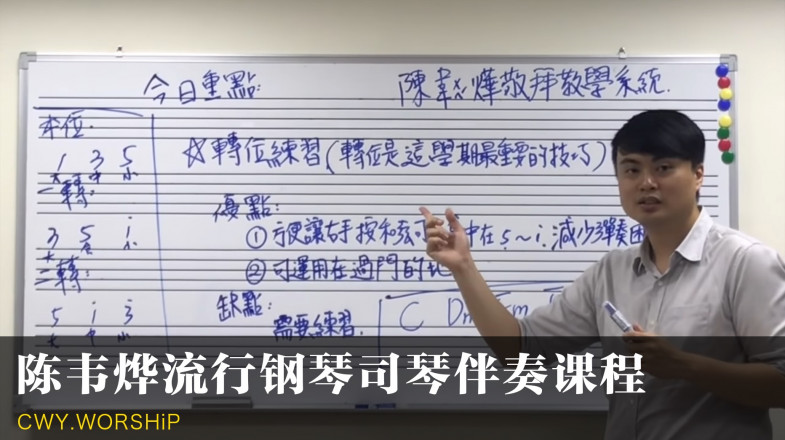 今日重點:
陳韋燁敬拜教學系統.
本位.
1 3 5
大 中 小
一轉:
3 5 i
大 中 小
二轉:
5 i 3
大 中 小
☆轉位練習(轉位是這學期最重要的技巧)
優點:
① 方便讓右手按和弦可 中在 5~i. 減少彈奏困
② 可運用在過門的
缺點:
需要練習.
C Dm
陈韦烨流行钢琴司琴伴奏课程
CWY.WORSHiP